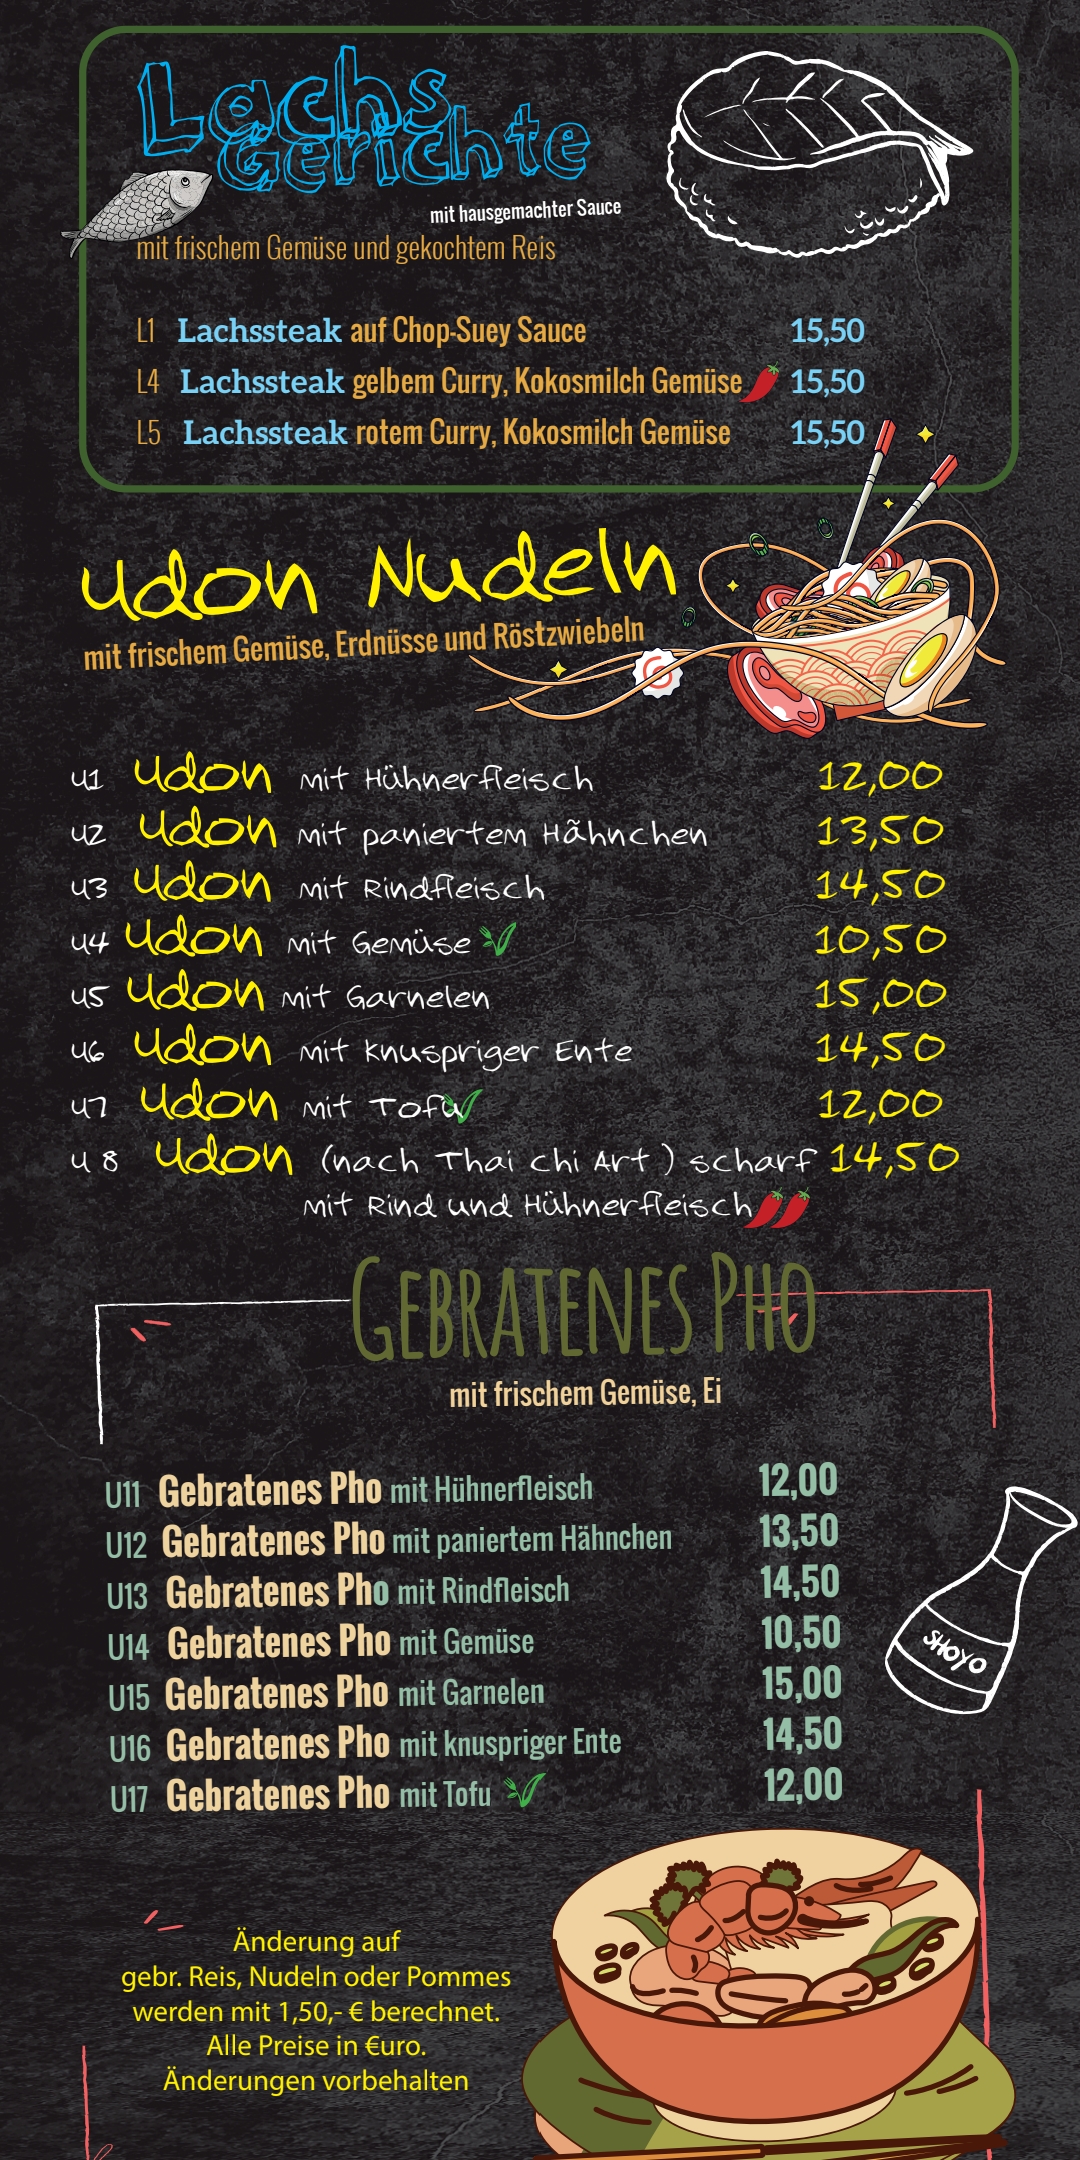 Lachs
Gerichte
mit hausgemachter Sauce
mit frischem Gemüse und gekochtem Reis
L1 Lachssteak auf Chop-Suey Sauce 15,50
L4 Lachssteak gelbem Curry, Kokosmilch Gemüse 15,50
L5 Lachssteak rotem Curry, Kokosmilch Gemüse 15,50
Udon Nudeln
mit frischem Gemüse, Erdnüsse und Röstzwiebeln
U1 Udon mit Hühnerfleisch 12,00
U2 Udon mit paniertem Hãhnchen 13,50
U3 Udon mit Rindfleisch 14,50
U4 Udon mit Gemüse 10,50
U5 Udon mit Garnelen 15,00
U6 Udon mit knuspriger Ente 14,50
U7 Udon mit Tofu 12,00
U 8 Udon (nach Thai Chi Art ) scharf 14,50
mit Rind und Hühnerfleisch
Gebratenes Pho
mit frischem Gemüse, Ei
U11 Gebratenes Pho mit Hühnerfleisch 12,00
U12 Gebratenes Pho mit paniertem Hähnchen 13,50
U13 Gebratenes Pho mit Rindfleisch 14,50
U14 Gebratenes Pho mit Gemüse 10,50
U15 Gebratenes Pho mit Garnelen 15,00
SHOYO
U16 Gebratenes Pho mit knuspriger Ente 14,50
U17 Gebratenes Pho mit Tofu 12,00
Änderung auf
gebr. Reis, Nudeln oder Pommes
werden mit 1,50,- € berechnet.
Alle Preise in €uro.
Änderungen vorbehalten